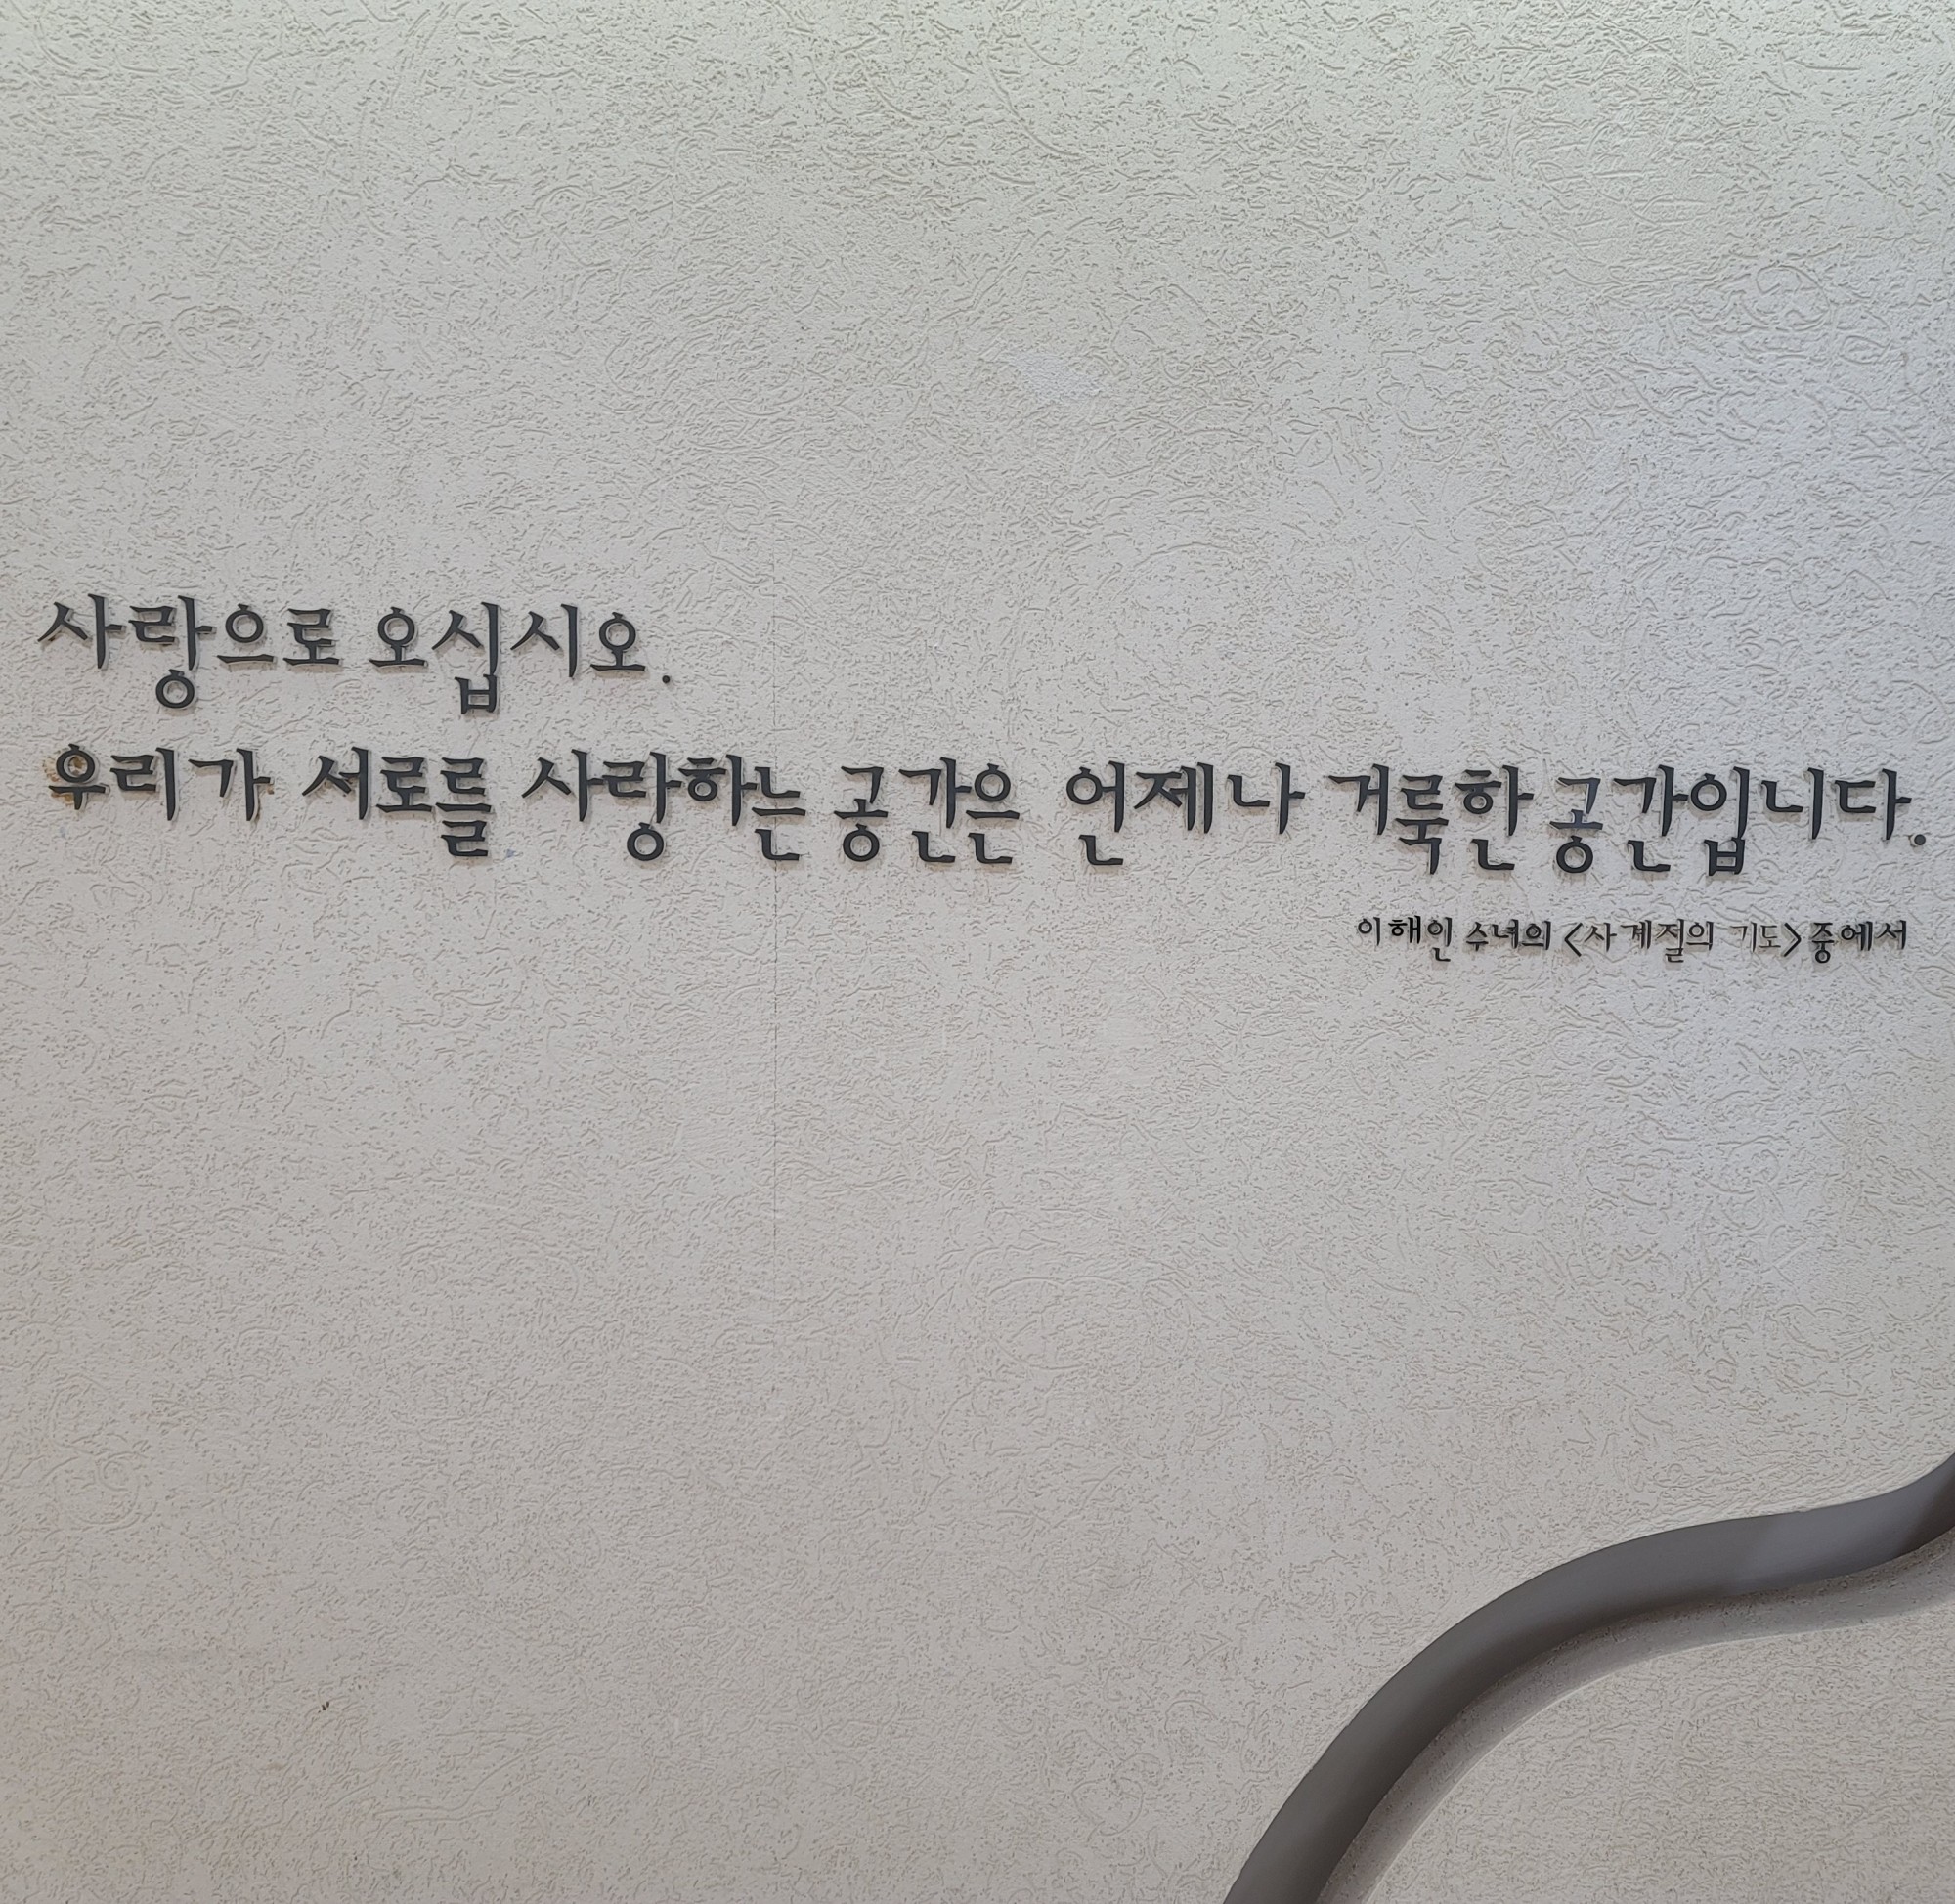 사랑으로 오십시오.
우리가 서로를 사랑하는 공간은 언제나 거룩한 공간입니다.
이해인 수녀의 <사계절의 기도> 중에서